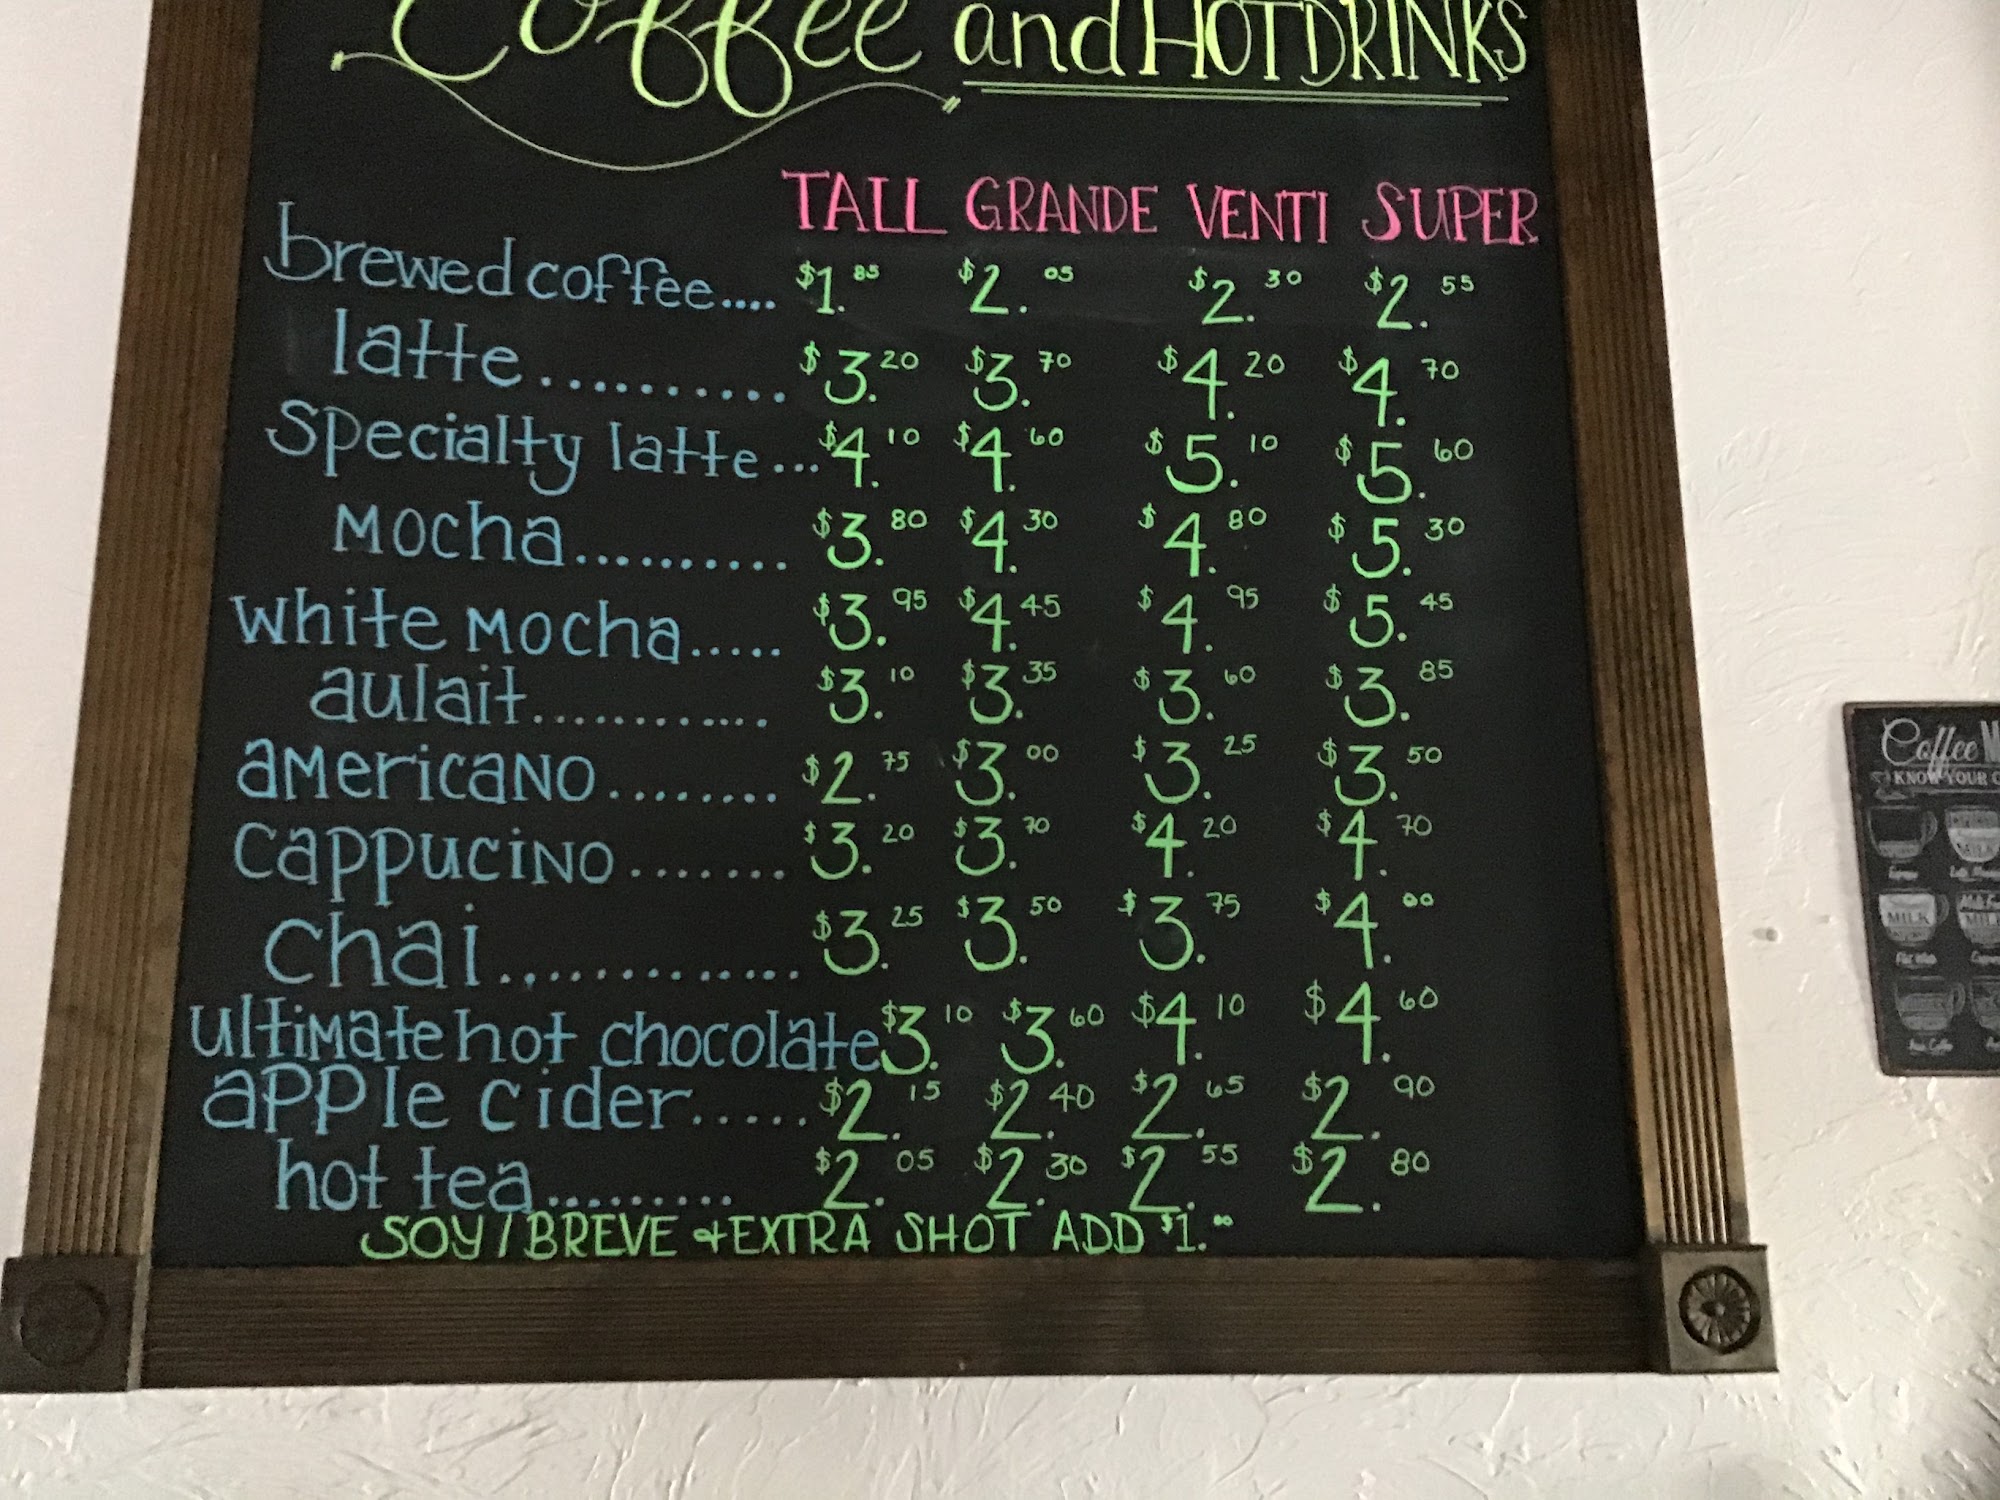 Coffee and HOT DRINKS
TALL GRANDE VENTI SUPER
brewed coffee.... $1.85 $2.05 $2.30 $2.55
latte.......... $3.20 $3.70 $4.20 $4.70
specialty latte... $4.10 $4.60 $5.10 $5.60
mocha.......... $3.80 $4.30 $4.80 $5.30
white mocha..... $3.95 $4.45 $4.95 $5.45
aulait............ $3.10 $3.35 $3.60 $3.85
americano........ $2.75 $3.00 $3.25 $3.50
cappucino....... $3.20 $3.70 $4.20 $4.70
chai............. $3.25 $3.50 $3.75 $4.00
ultimate hot chocolate $3.10 $3.60 $4.10 $4.60
apple cider..... $2.15 $2.40 $2.65 $2.90
hot tea......... $2.05 $2.30 $2.55 $2.80
SOY/BREVE & EXTRA SHOT ADD $1.00
Coffee
KNOW YOUR
MILK